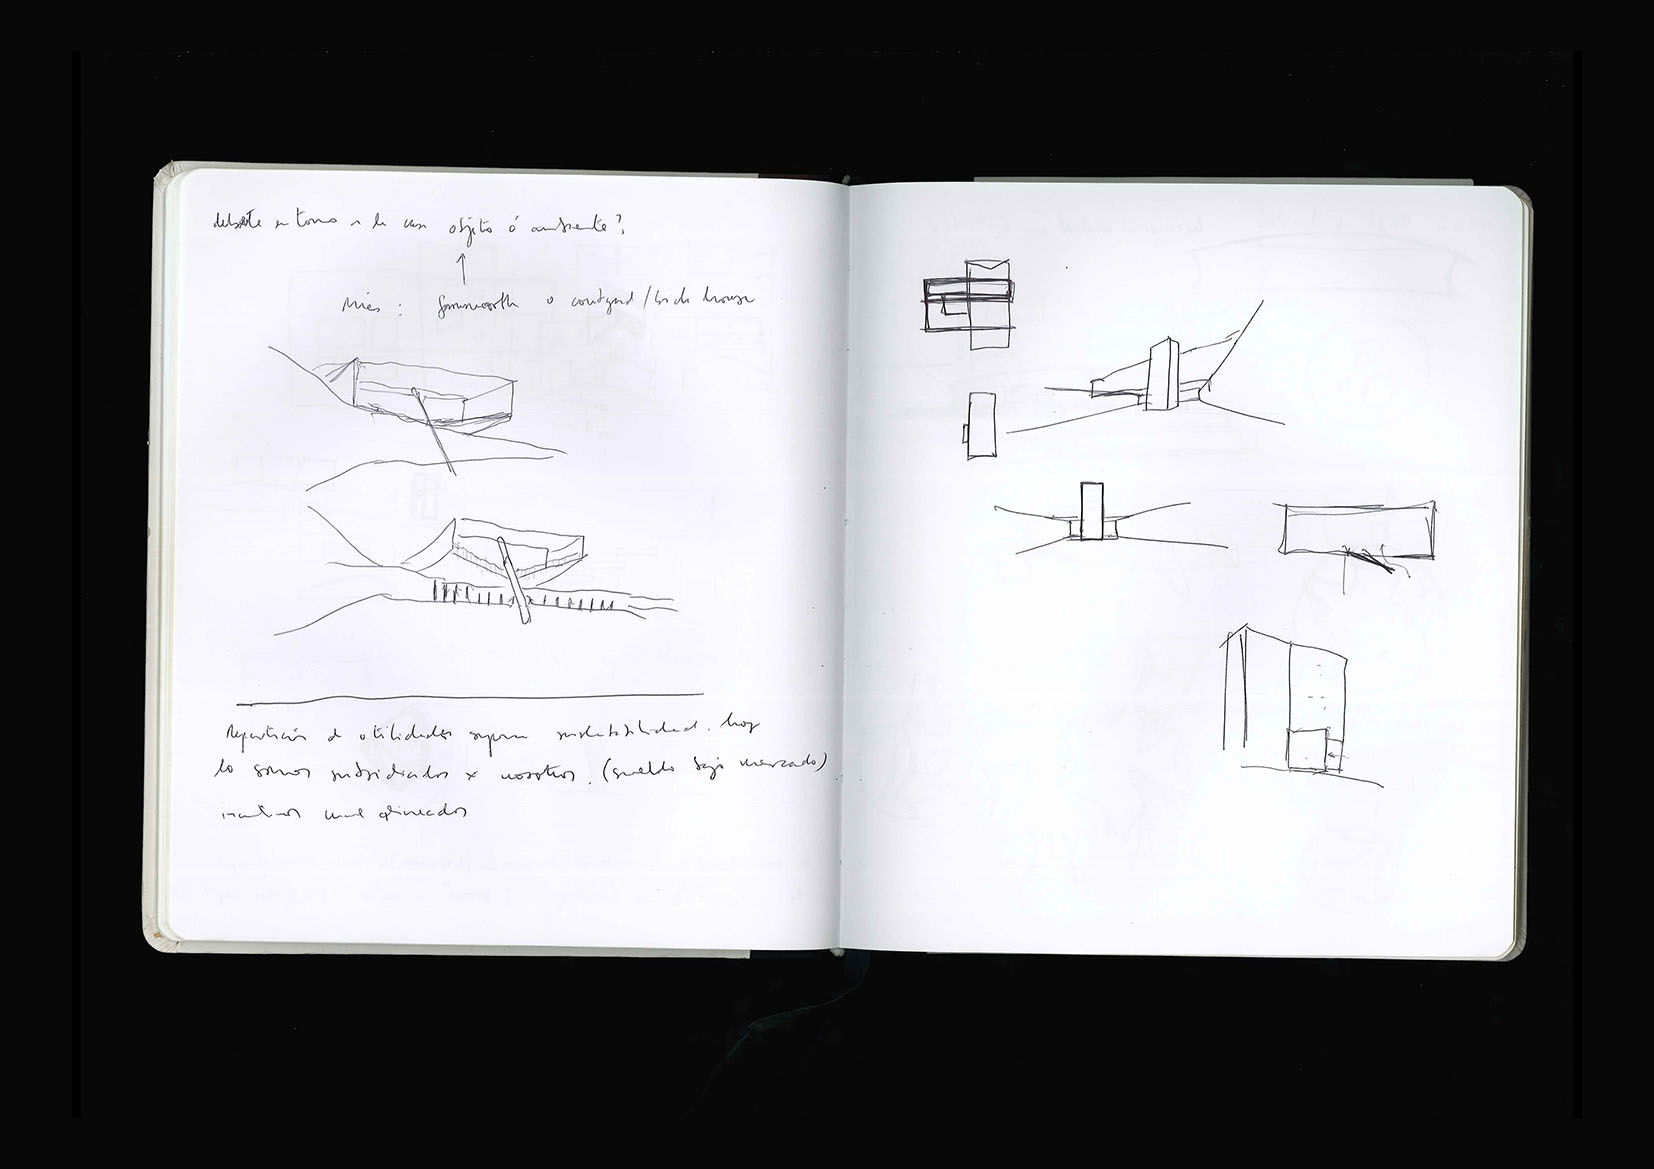 debate en torno a la casa objeto ó ambiente?
Mies: farnsworth o courtyard/brick house
Repartición de utilidades supone sustentabilidad. hoy
lo somos subsidiados x nosotros. (sueldo bajo mercado)
incentivos mal alineados